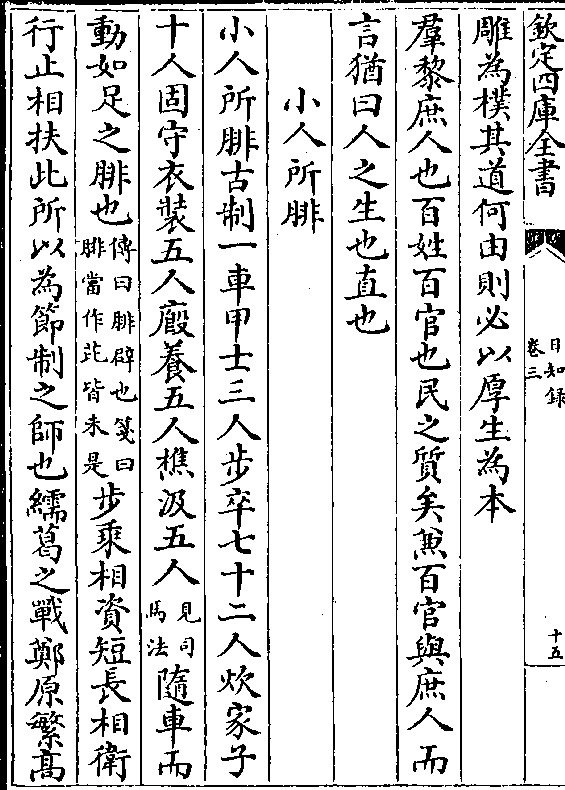 欽定四庫全書
日知錄
卷三
十五
雕為樸其道何由則必以厚生為本
羣黎庶人也百姓百官也民之質矣兼百官與庶人而
言猶曰人之生也直也
小人所腓
小人所腓古制一車甲士三人步卒七十二人炊家子
十人固守衣裝五人廏養五人樵汲五人見司馬法隨車而
動如足之腓也傳曰腓辟也箋曰腓當作芘皆未是步乘相資短長相衛
行止相扶此所以為節制之師也繻葛之戰鄭原繁高